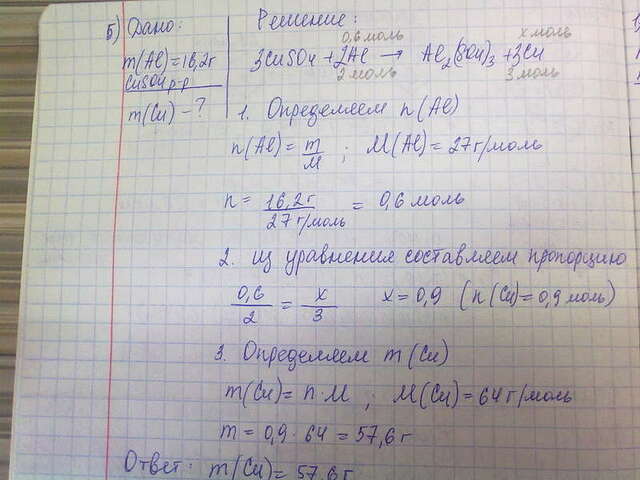 5) Дано:
m(Al)=16,2г
CuSO4 р-р
m(Cu) - ?
Решение:
0,6 моль х моль
3CuSO4 + 2Al → Al2(SO4)3 + 3Cu
2 моль 3 моль
1. Определяем n(Al)
n(Al) = m/M ; M(Al) = 27 г/моль
n = 16,2 г / 27 г/моль = 0,6 моль
2. из уравнения составляем пропорцию
0,6/2 = x/3 x = 0,9 (n(Cu)=0,9 моль)
3. Определяем m(Cu)
m(Cu) = n·M ; M(Cu) = 64 г/моль
m = 0,9 · 64 = 57,6 г
Ответ: m(Cu) = 57,6г